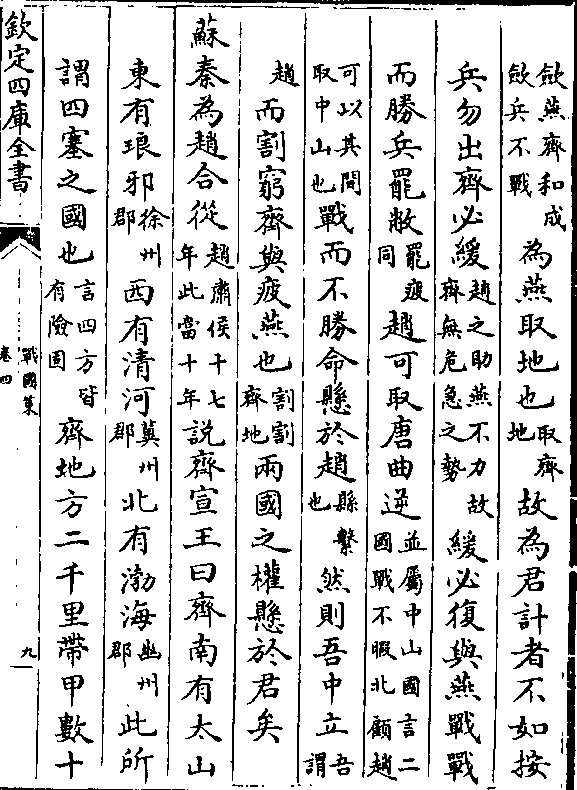 歛燕齊和成歛兵不戰為燕取地也取齊地故為君計者不如按
兵勿出齊必緩趙之助燕不力故齊無危急之勢緩必復與燕戰戰
而勝兵罷敝罷疲同趙可取唐曲逆並屬中山國言二國戰不暇北顧趙
可以其間取中山也戰而不勝命懸於趙縣繫也然則吾中立吾謂
趙而割窮齊與疲燕也割割齊地兩國之權懸於君矣
蘇秦為趙合從趙肅侯十七年此當十年說齊宣王曰齊南有太山
東有琅邪徐州郡西有清河冀州郡北有渤海幽州郡此所
謂四塞之國也言四方皆有險固齊地方二千里帶甲數十
欽定四庫全書
戰國策
卷四
九